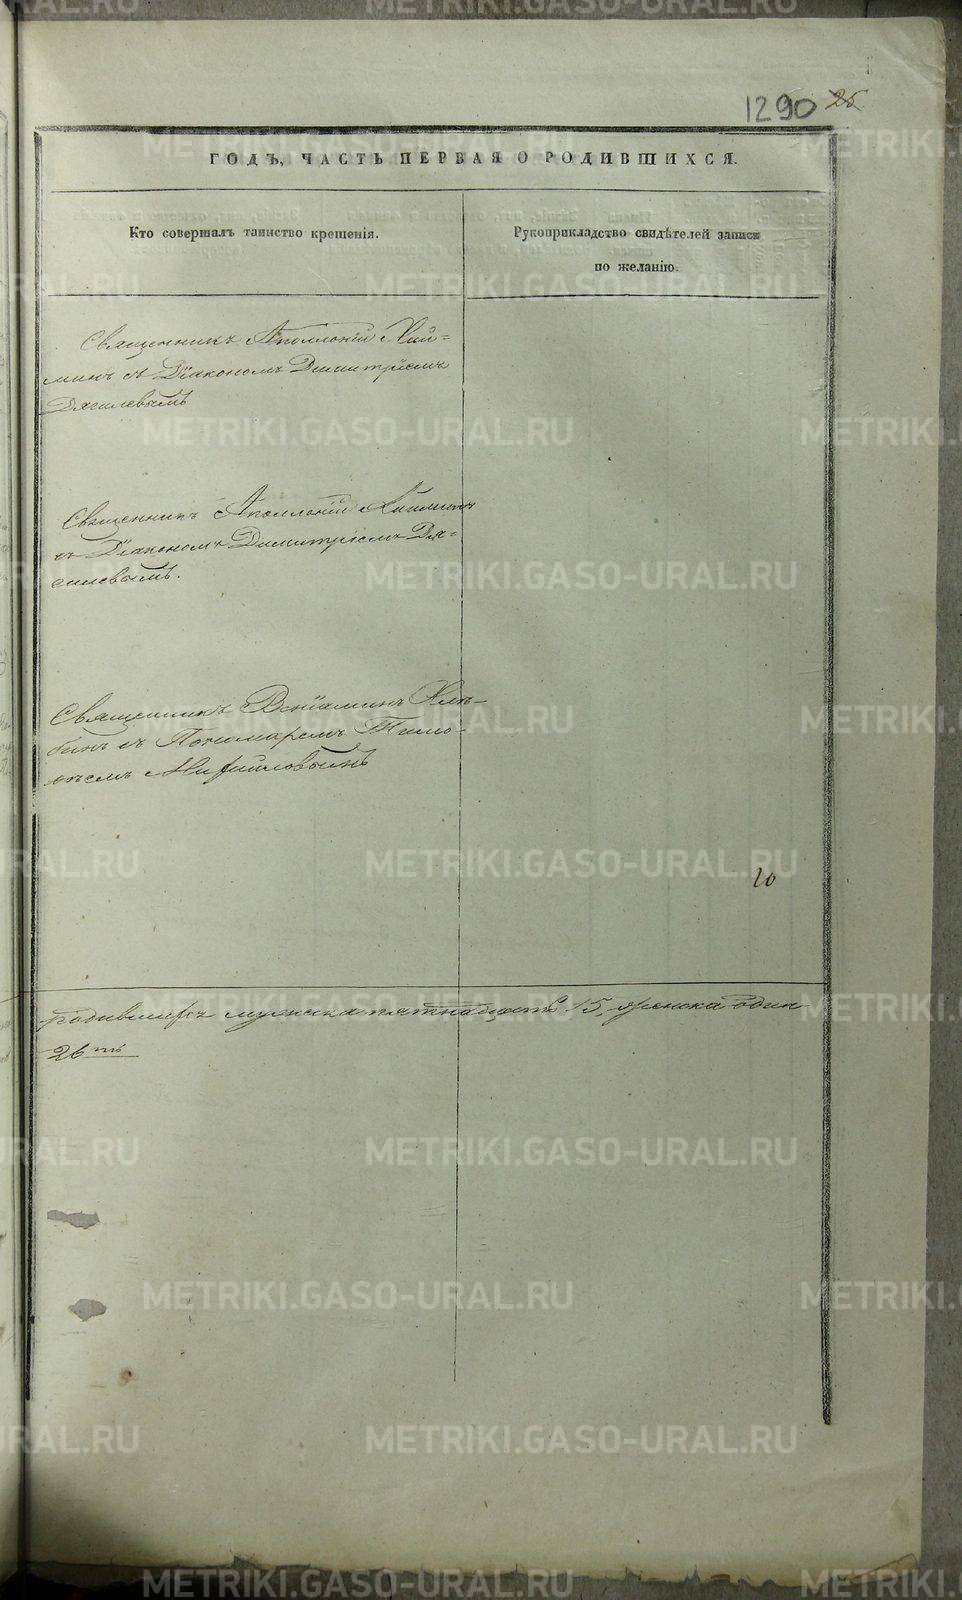 1290 25
ГОДЪ, ЧАСТЬ ПЕРВАЯ О РОДИВШИХСЯ.
Кто совершалъ таинство крещенія.
Рукоприкладство свидѣтелей записи
по желанію.
Священникъ Аполлоній Хий=
минъ съ Діакономъ Димитріемъ
Дягилевымъ
Священникъ Аполлоній Хийминъ
съ Діакономъ Димитріемъ Дя=
гилевымъ.
Священникъ Веніаминъ Хлѣ-
бинъ съ Пономаремъ Тимо-
ѳеемъ
10
родившихъ мужска пятнадцать 15, женска один
26ть
METRIKI.GASO-URAL.RU